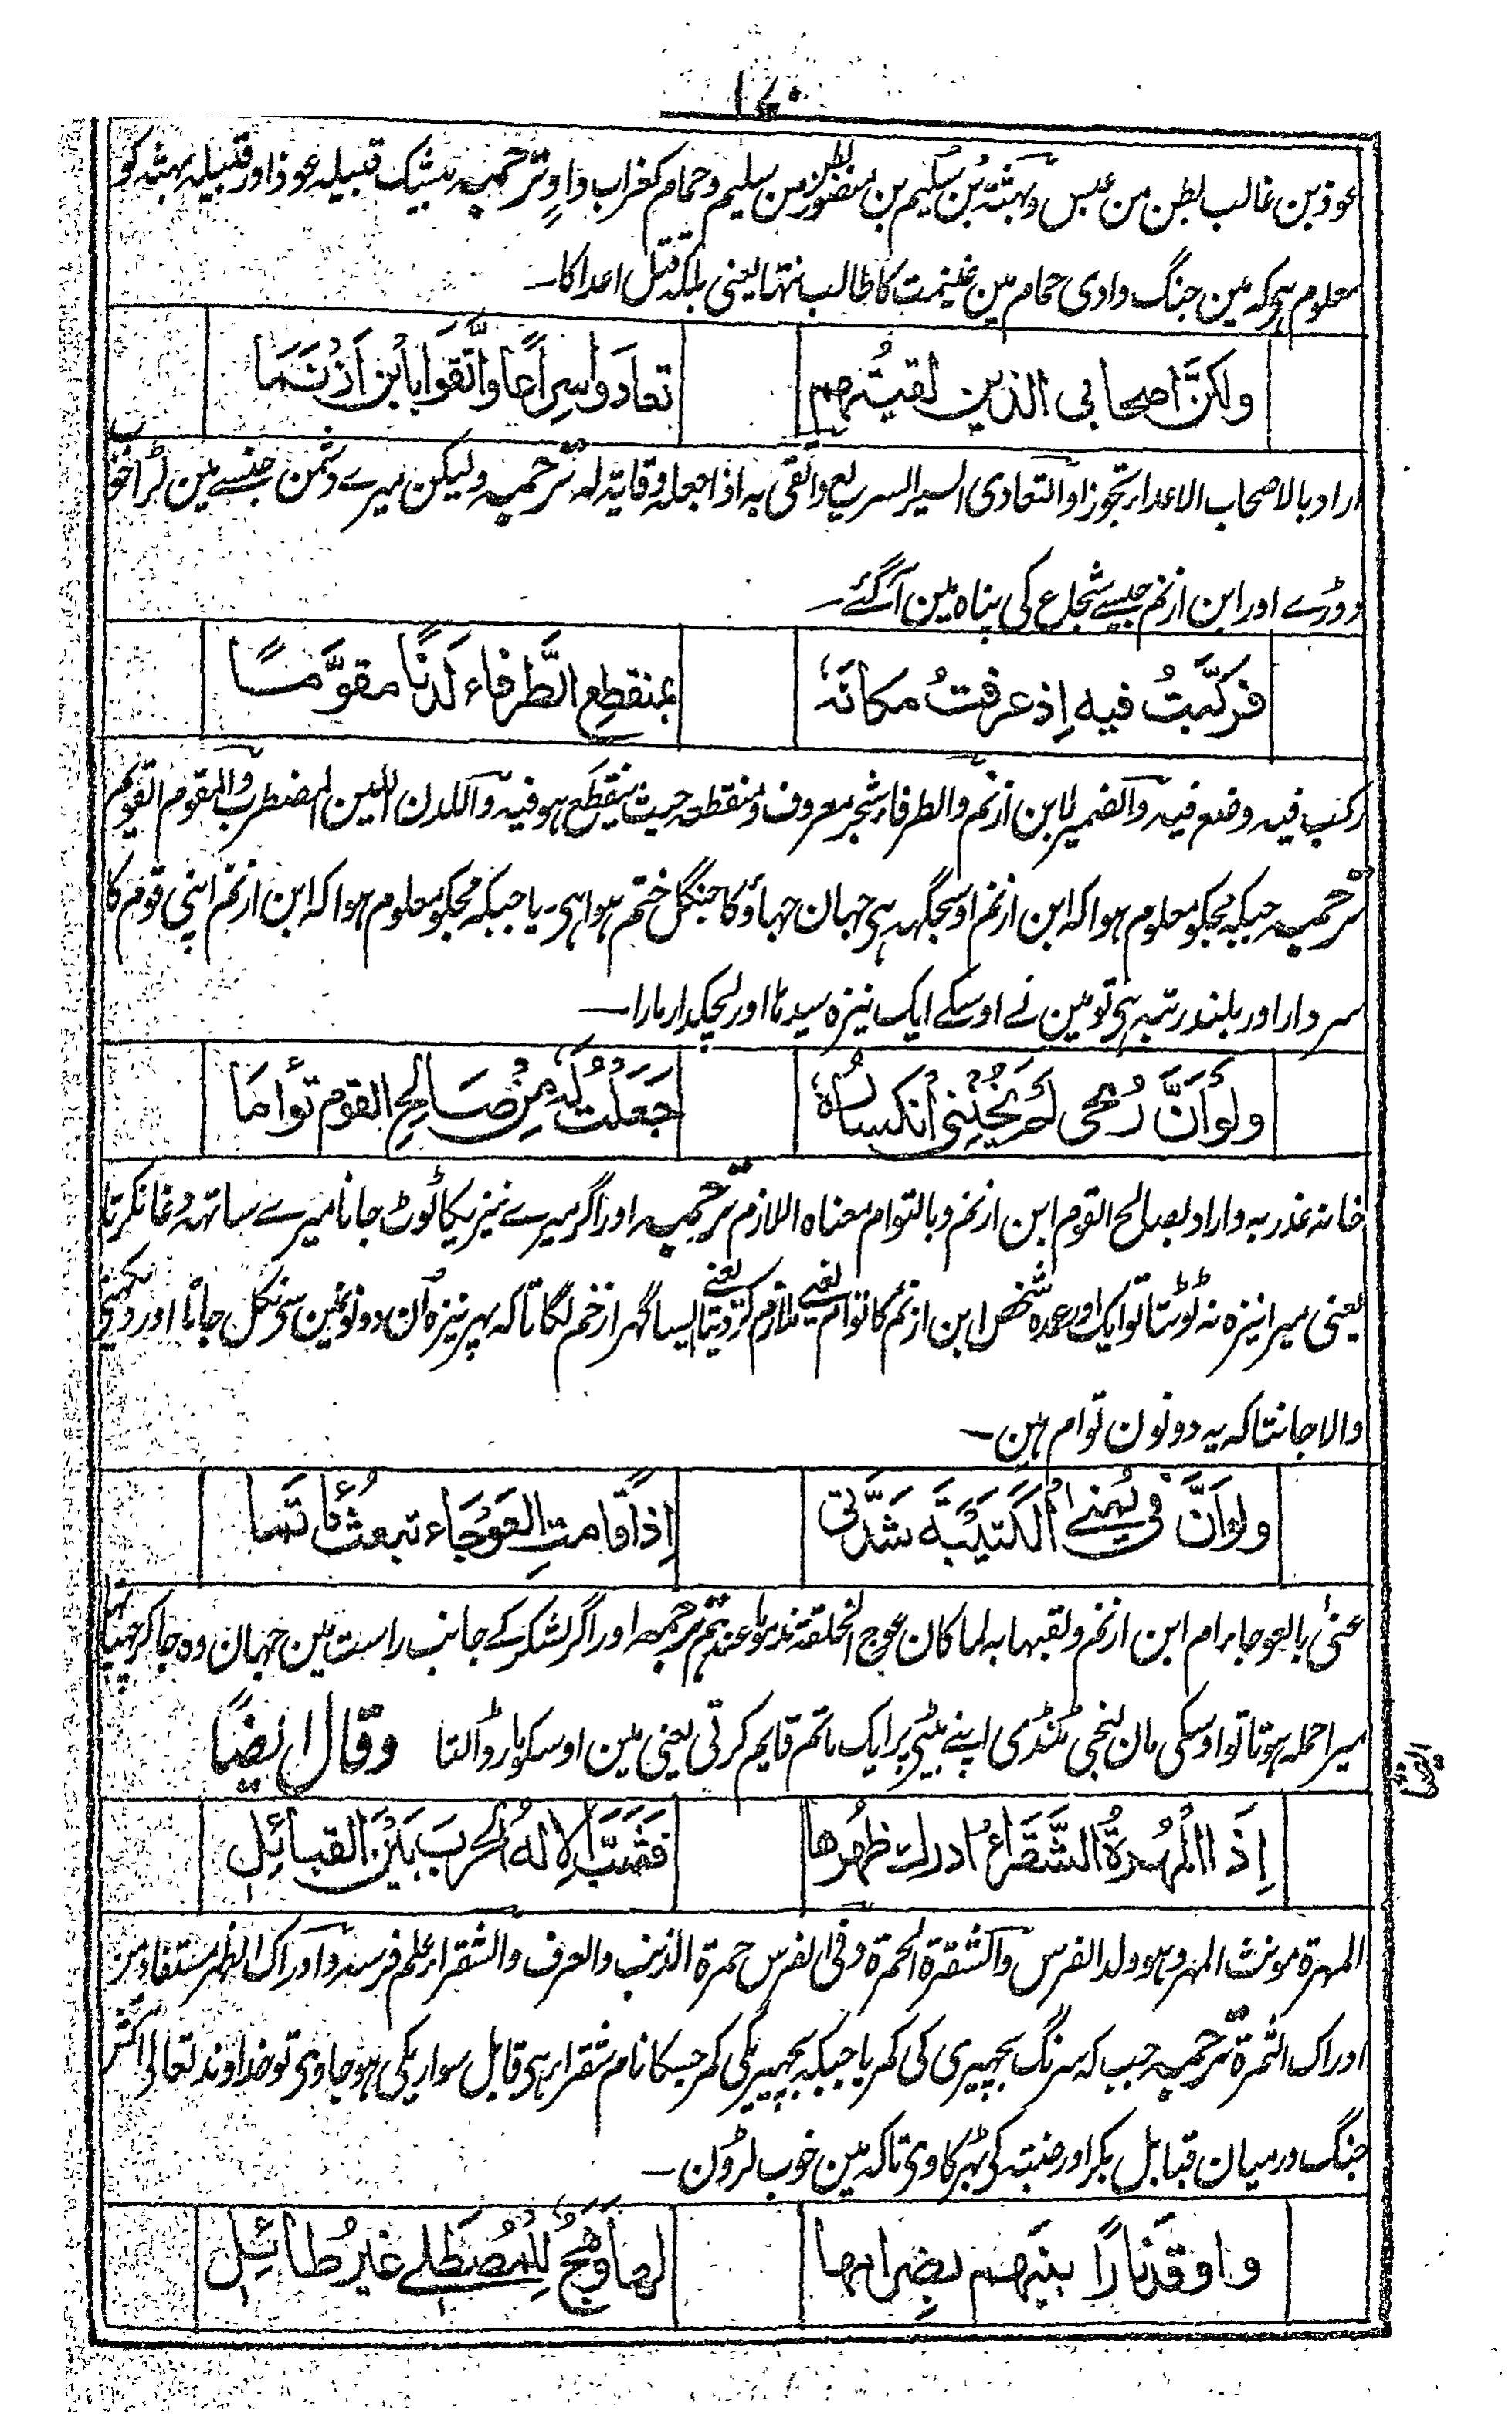 ۱۷۰
عوذ بن غالب بطن من عبس وبہثۃ بن سلیم بن منصور بطن من سلیم وحمام کغراب وادٍ ترجمہ بیشک قبیلہ عوذ اور قبیلہ بہثہ کو
معلوم ہی کہ مین جنگ وادی حمام مین غنیمت کا طالب نتھا یعنی بلکہ قتل اعدا کا ۔
ولکنَّ اصحابی الذین لقیتُہم تعادَوا سِراعًا واتَّقَوا بابن اَزْنَمَا
اراد بالاصحاب الاعداء تجوزا والتعادی السیر السریع واتقی بہ اذا جعلہ وقایۃ لہ ترجمہ ولیکن میرے دشمن جنسے مین لڑا خوب
دوڑے اور ابن ازنم جیسے شجاع کی پناہ مین آگئے ۔
فرکَّبتُ فیہ اِذ عرفتُ مکانَہٗ بمنقطِعِ الطَّرفاء لَدنًا مقوَّمًا
رکب فیہ وضع فیہ والضمیر لابن ازنم والطرفاء شجر معروف ومنقطعہ حیث ینقطع ہو فیہ واللدن اللین المضطرب والمقوم القویم
ترجمہ جبکہ مجکو معلوم ہوا کہ ابن ازنم اوسجگہہ ہی جہان جہاؤ کا جنگل ختم ہوا ہی ۔ یا جبکہ مجکو معلوم ہوا کہ ابن ازنم اپنی قوم کا
سردار اور بلند رتبہ ہی تو مین نے اوسکے ایک نیزہ سیدہا اور لچکدار مارا ۔
ولَو اَنَّ رُمحی لَم یَخُنِّی اُنکسارُہٗ جَعَلتُ لَہٗ مِن صَالحِ القوم تَوأمَا
خانہ غدر بہ واراد بصالح القوم ابن ازنم وبالتوام معناہ اللازم ترجمہ اور اگر میرے نیزیکا ٹوٹ جانا میرے ساتہہ دغا نکرتا
یعنی میرا نیزہ نہ ٹوٹتا تو ایک اور عمدہ شخص ابن ازنم کا توام یعنے ملازم کر دیتا یعنے ایسا گہرا زخم لگاتا کہ پہر نیزہ اُن دونونمین سی نکل جاتا اور دیکہنی
والا جانتا کہ یہ دونون توام ہین ۔
ولو اَنَّ فی یُمنے الکَتیبَۃ شَدَّتی اِذًا قامتِ العَوجَاء تبعثُ مأتَما
عنیٰ بالعوجاء ام ابن ازنم ولقبہا بہ لما کان عوج الخلقۃ مذموما عندہم ترجمہ اور اگر لشکر کے جانب راست مین جہان وہ جاکر چہپا تہا
میرا حملہ ہوتا تو اوسکی مان لنجی ٹنڈی اپنے بیٹی پر ایک ماتم قایم کرتی یعنی مین اوسکو مار ڈالتا وقال ایضًا
ایضًا
اِذَا المُہرۃُ الشَّقرَاءُ ادرک ظہرُہا فشَبَّ الالہُ الحربَ بَینَ القبائلِ
المہرۃ مونث المہر وہو ولد الفرس والشقرۃ الحمرۃ وفی الفرس حمرۃ الذنب والعرف والشقراء علم فرسہ وادراک الظہر مستفاد من
ادراک الثمرۃ ترجمہ جب کہ سرنگ بچہیری کی کمر یا جبکہ بچہیریکی کمر جسکا نام شقراء ہی قابل سواریکی ہو جاوی تو خداوند تعالیٰ اکثر
جنگ درمیان قبایل بکر اور ضبتہ کی بہڑکاوی تاکہ مین خوب لڑون ۔
واوقدَ نارًا بینَہم بضِرامہا لہا وَہَجٌ للمُصطلے غیرُ طائلِ